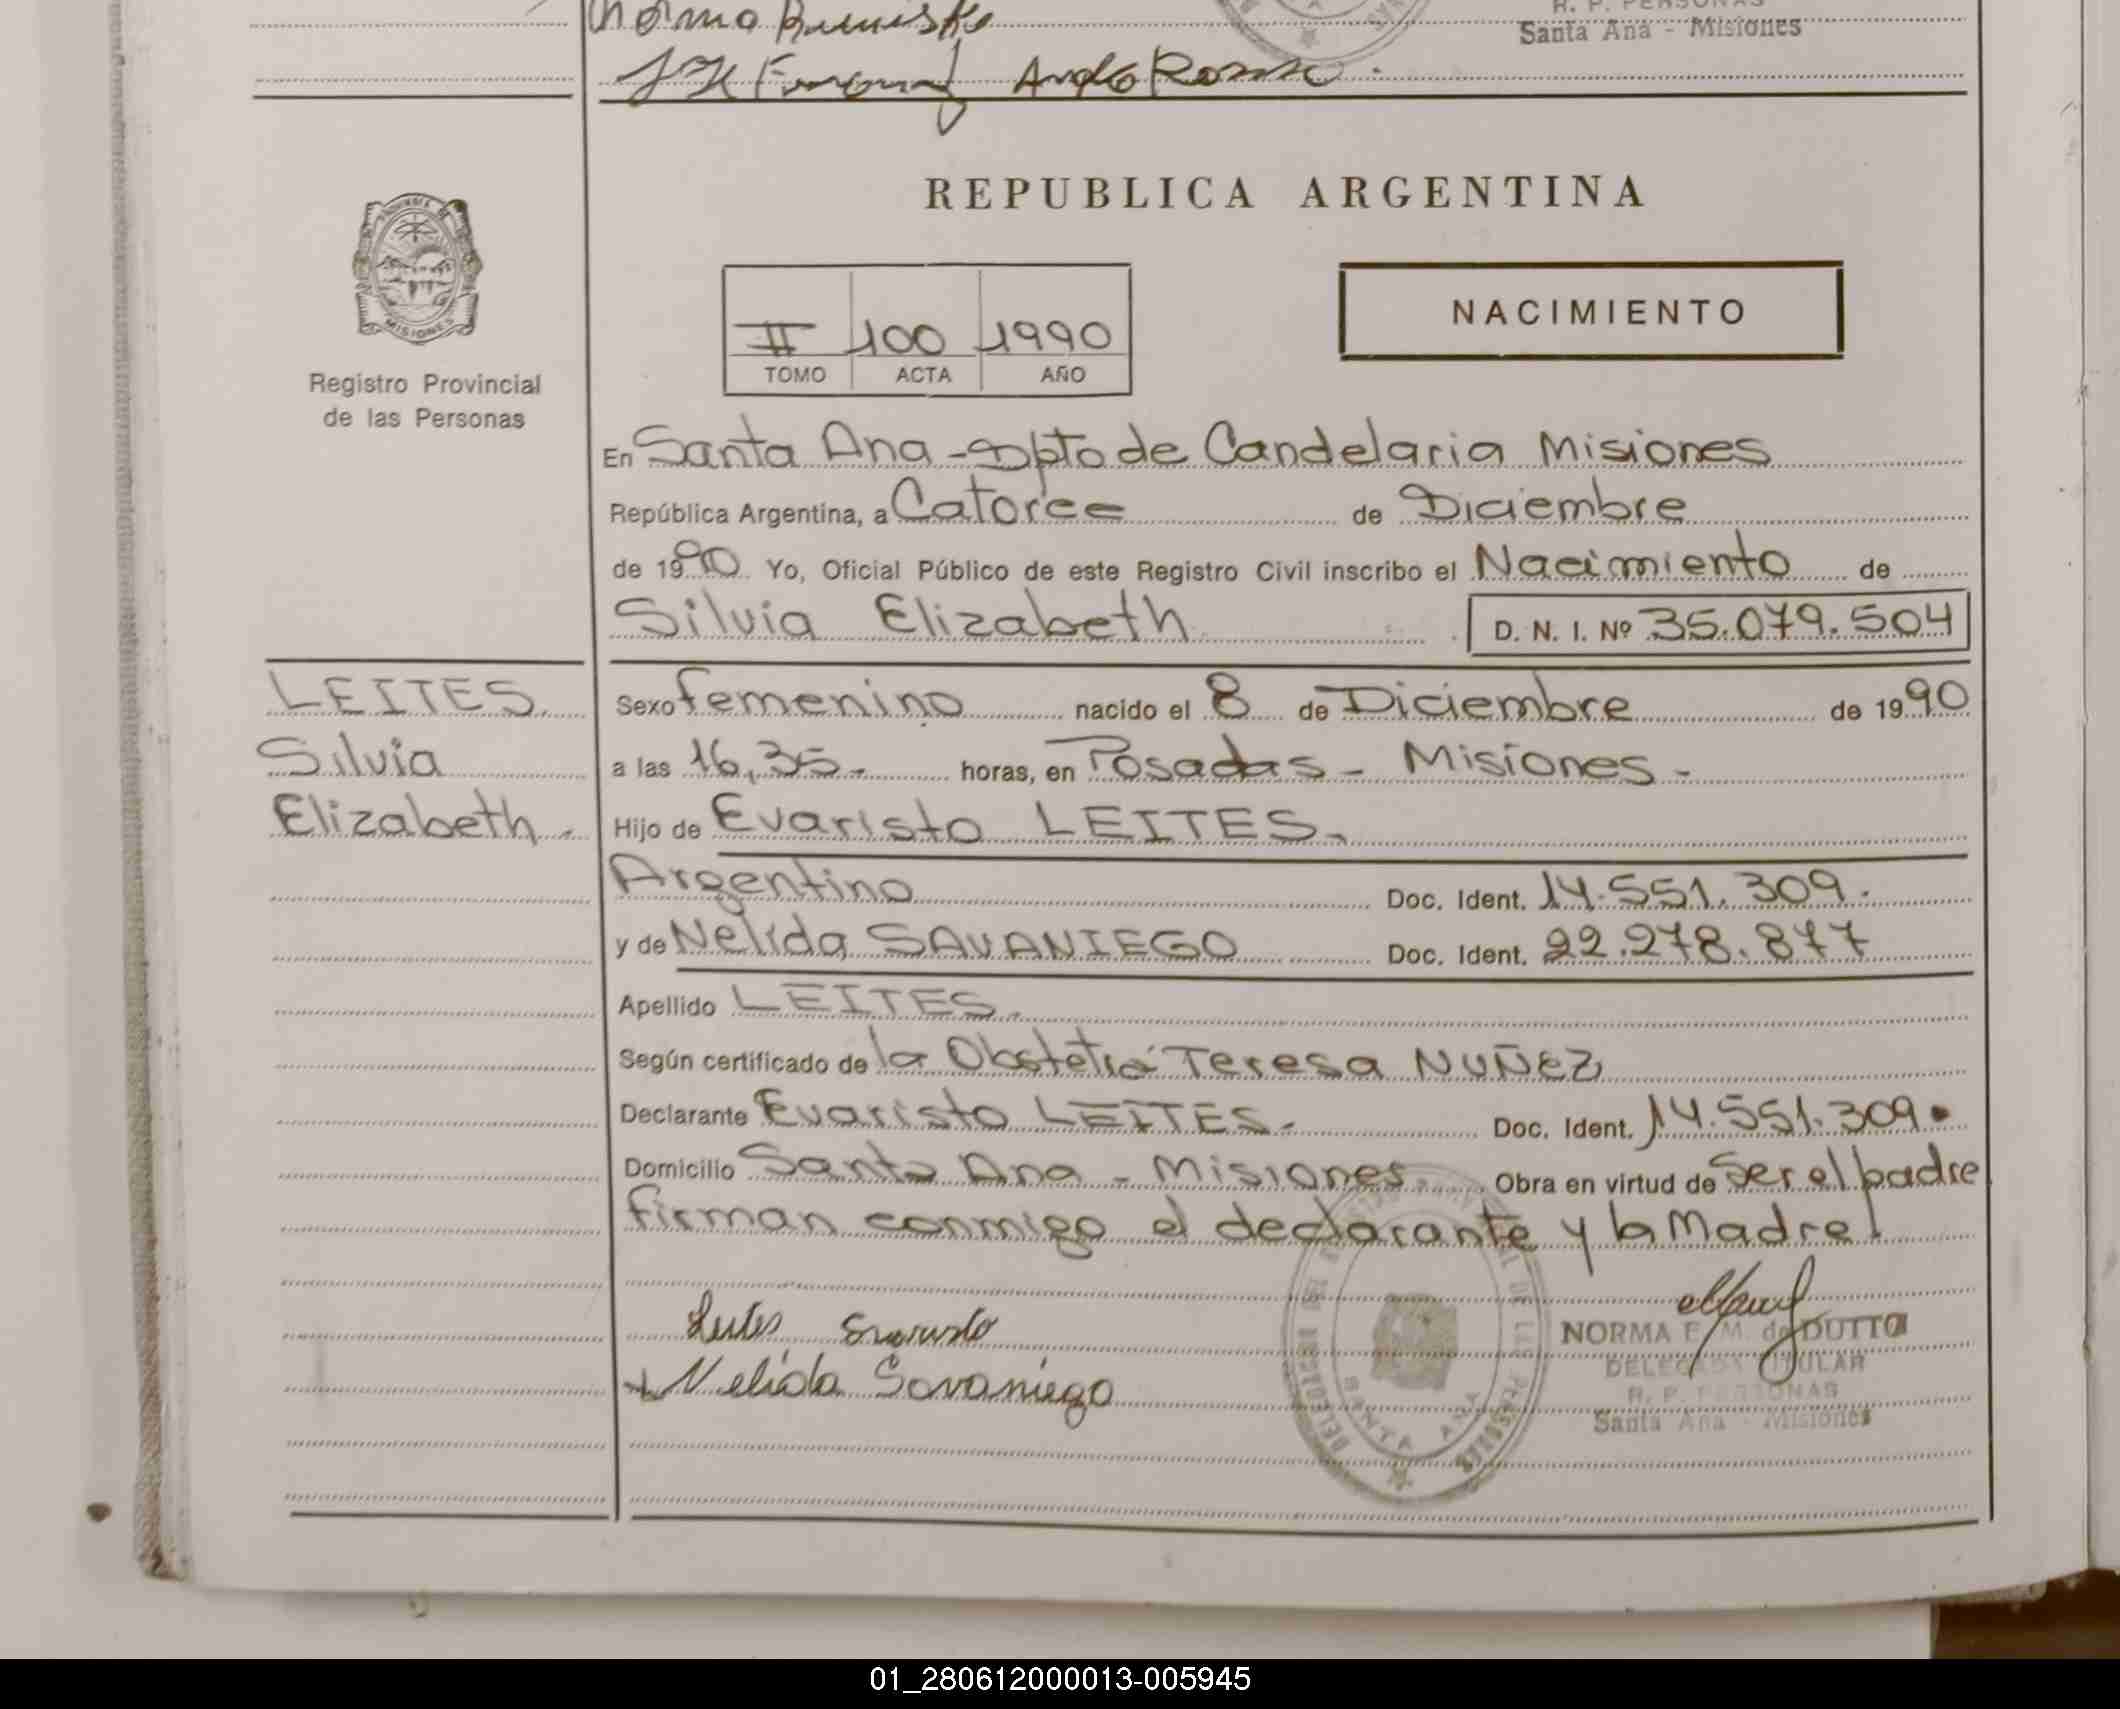 Norma
R. P. PERSONAS
Santa Ana - Misiones
REPUBLICA ARGENTINA
PROVINCIA DE MISIONES
Registro Provincial
de las Personas
II 100 1990
TOMO ACTA AÑO
NACIMIENTO
En Santa Ana - Dpto de Candelaria Misiones
República Argentina, a Catorce de Diciembre
de 1990 Yo, Oficial Público de este Registro Civil inscribo el Nacimiento de
Silvia Elizabeth D. N. I. Nº 35.079.504
LEITES
Silvia
Elizabeth.
Sexo femenino nacido el 8 de Diciembre de 1990
a las 16,35.- horas, en Posadas - Misiones -
Hijo de Evaristo LEITES.
Argentino Doc. Ident. 14.551.309.
y de Nelida SAVANIEGO Doc. Ident. 22.278.877
Apellido LEITES.
Según certificado de la Obstetra Teresa NUÑEZ
Declarante Evaristo LEITES. Doc. Ident. 14.551.309.
Domicilio Santa Ana - Misiones. Obra en virtud de Ser el padre
firman conmigo el declarante y la Madre
Leites Evaristo
Nelida Savaniego
SANTA ANA
NORMA E. M. de DUTTO
DELEGADA TITULAR
R. P. PERSONAS
Santa Ana - Misiones
01_280612000013-005945